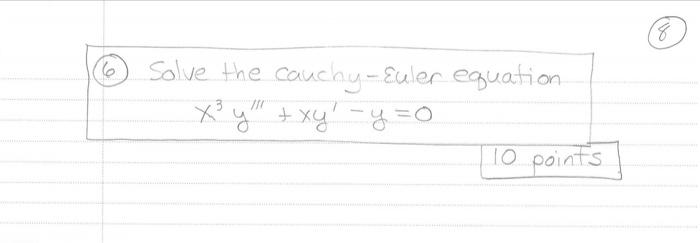 8
6 Solve the Cauchy-Euler equation
x³y''' + xy' - y = 0
10 points